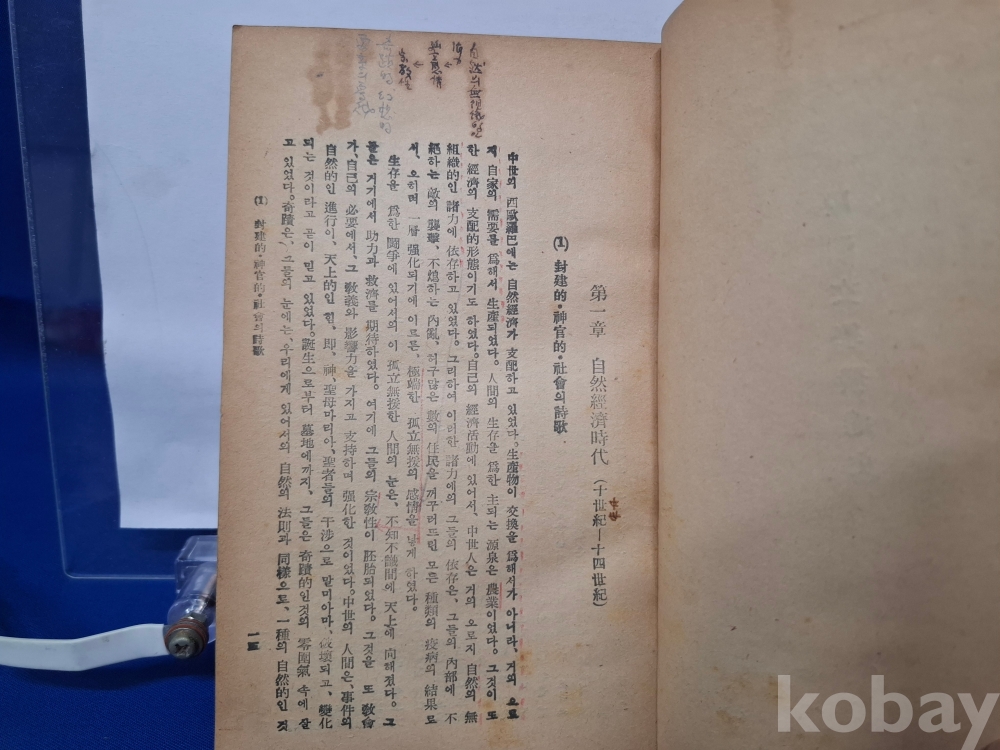 第一章 自然經濟時代 (十世紀—十四世紀)
(1) 封建的・神官的・社會의 詩歌
中世의 西歐羅巴에는 自然經濟가 支配하고 있었다. 生産物이 交換을 爲해서가 아니라, 거의 오로
지 自家의 需要를 爲해서 生産되었다. 人間의 生存을 爲한 主되는 源泉은 農業이었다. 그것이 또
한 經濟의 支配的形態이기도 하였다. 自己의 經濟活動에 있어서, 中世人은 거의 오로지 自然의 無
組織的인 諸力에 依存하고 있었다. 그리하여 이러한 諸力에의 그들의 依存은, 그들의 內部에 不
絕하는 敵의 襲擊, 不熄하는 內亂, 허구많은 數의 住民을 꺼꾸러뜨린 모든 種類의 疫病의 結果로
서, 오히며 一層 强化되기에 이르른, 極端한 孤立無援의 感情을 낳게 하였다.
生存을 爲한 鬪爭에 있어서의 이 孤立無援한 人間의 눈은, 不知不識間에 天上에 向해졌다. 그
들은 거기에서 助力과 救濟를 期待하였다. 여기에 그들의 宗敎性이 胚胎되었다. 그것을 또 敎會
가, 自己의 必要에서, 그 敎義와 影響力을 가지고 支持하며 强化한 것이었다. 中世의 人間은, 事件의
自然的인 進行이, 天上的인 힘, 即, 神, 聖母마리아, 聖者들의 干涉으로 말미아마, 破壞되고, 變化
되는 것이라고 곧이 믿고 있었다. 誕生으로부터 墓地에까지, 그들은 奇蹟的인것의 雰圍氣 속에 살
고 있었다. 奇蹟은, 그들의 눈에는, 우리에게 있어서의 自然의 法則과 同樣으로, 一種의 自然的인 것
(1) 封建的・神官的・社會의 詩歌
一三
宗敎性
kobay